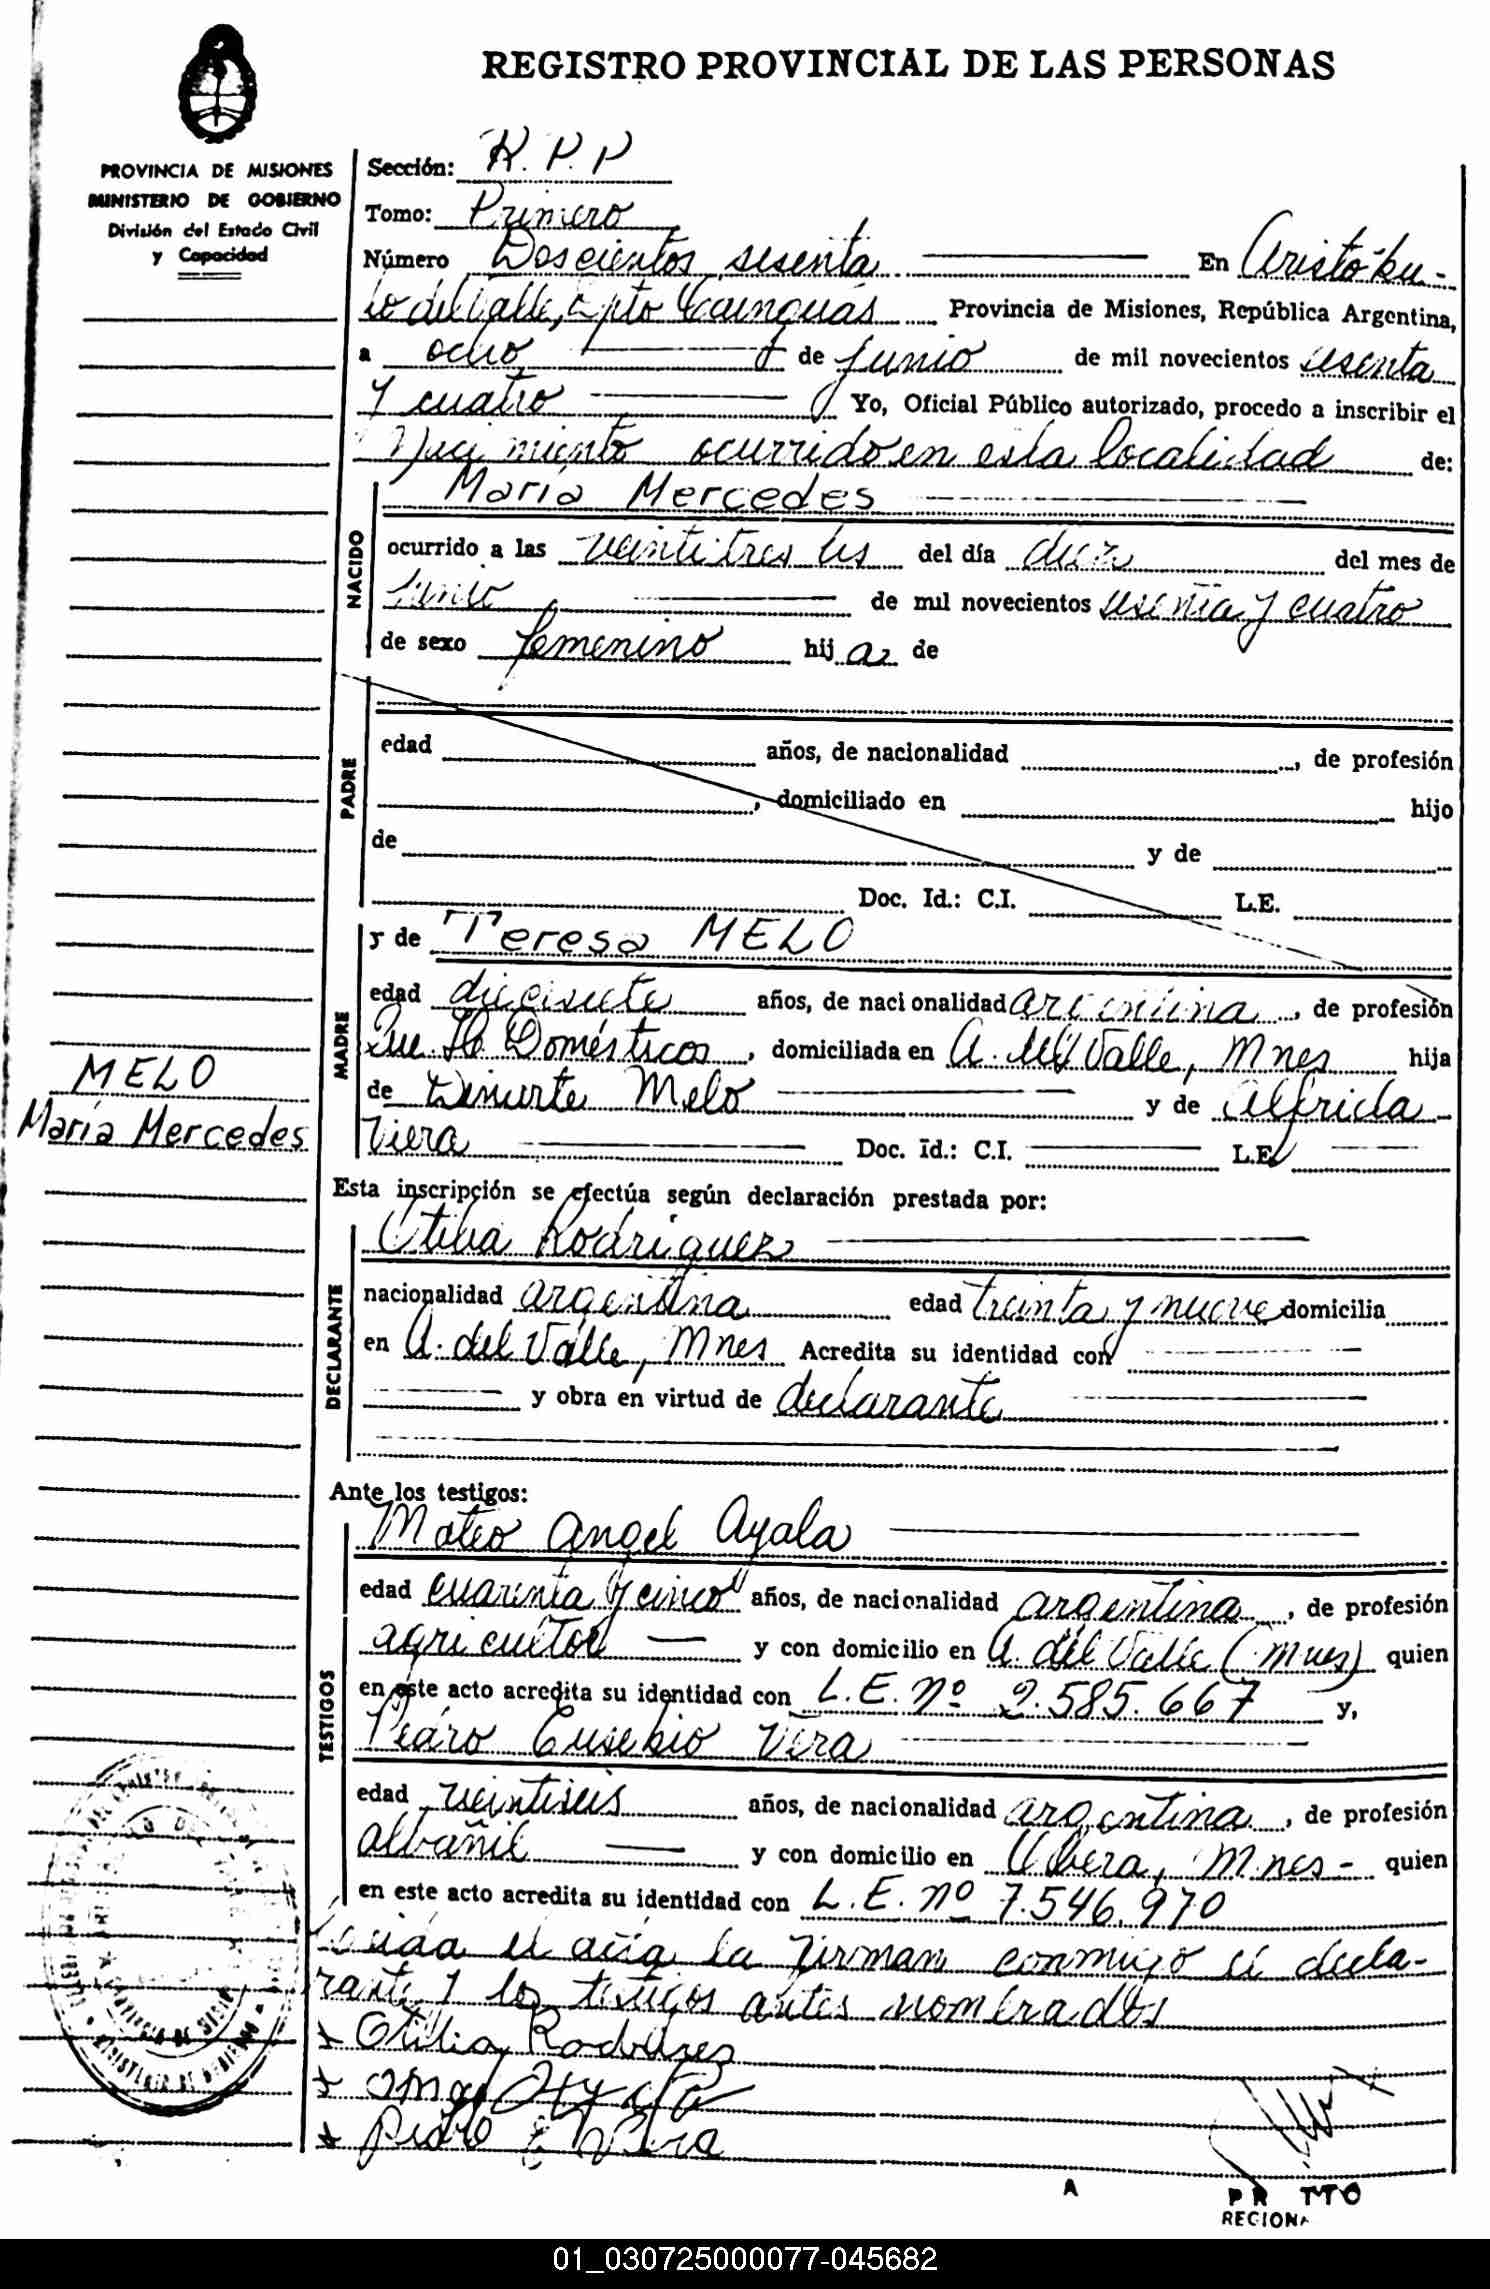 REGISTRO PROVINCIAL DE LAS PERSONAS
PROVINCIA DE MISIONES
MINISTERIO DE GOBIERNO
División del Estado Civil
y Capacidad
Sección: R.P.P
Tomo: Primero
Número Doscientos sesenta En Aristóbu-
lo del Valle, Dpto Cainguás Provincia de Misiones, República Argentina,
a ocho de junio de mil novecientos sesenta
y cuatro Yo, Oficial Público autorizado, procedo a inscribir el
Nacimiento ocurrido en esta localidad de:
María Mercedes
NACIDO
ocurrido a las veintitres hs del día diez del mes de
junio de mil novecientos sesenta y cuatro
de sexo femenino hija de
PADRE
edad años, de nacionalidad , de profesión
, domiciliado en hijo
de y de
Doc. Id.: C.I. L.E.
MADRE
y de Teresa MELO
edad diecisiete años, de nacionalidad argentina, de profesión
Domésticos, domiciliada en A. del Valle, Mnes hija
de Melo y de Alfrida
Viera Doc. Id.: C.I. L.E.
MELO
María Mercedes
Esta inscripción se efectúa según declaración prestada por:
Otilia Rodriguez
DECLARANTE
nacionalidad argentina edad treinta y nueve domicilia
en A. del Valle, Mnes Acredita su identidad con
y obra en virtud de declarante
Ante los testigos:
Mateo Angel Ayala
TESTIGOS
edad cuarenta y cinco años, de nacionalidad argentina, de profesión
agricultor y con domicilio en A. del Valle (Mnes) quien
en este acto acredita su identidad con L.E. Nº 2.585.667 y,
Pedro Eusebio Vera
edad veintiseis años, de nacionalidad argentina, de profesión
albañil y con domicilio en Obera, Mnes- quien
en este acto acredita su identidad con L.E. nº 7.546.970
Leida el acta la firman conmigo el decla-
rante y los testigos antes nombrados
Otilia Rodriguez
Angel Ayala
Pedro E Vera
A
REGIONA
01_030725000077-045682